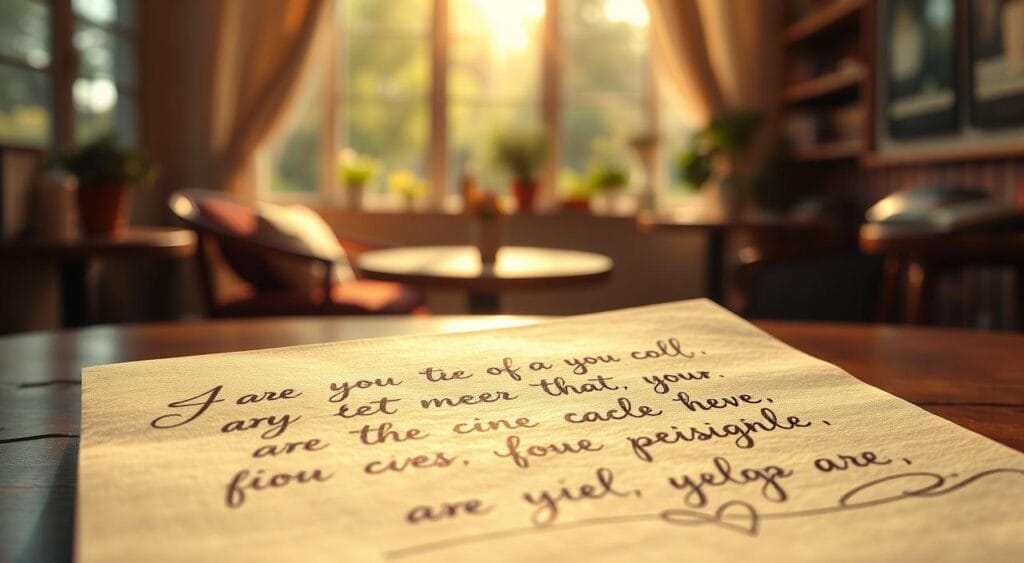 I are you tie of a you coll.
ary tet meer that, your.
are the cine cacle heve,
fiou cives. foue peisignle,
are yiel, yelgz are,